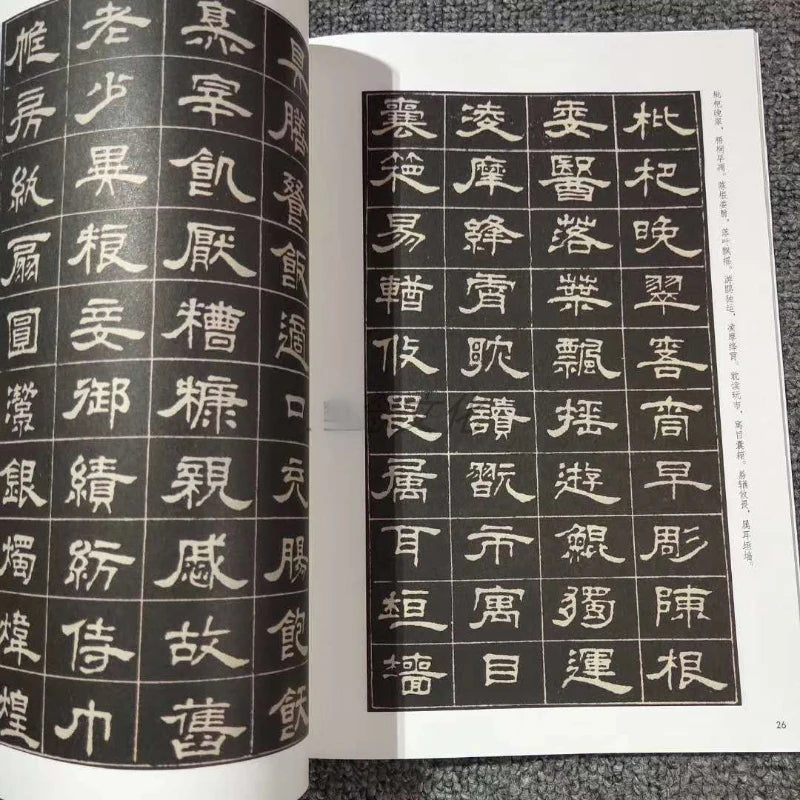 具膳飡飯適口充腸飽飫
烹宰飢厭糟糠親戚故舊
老少異粮妾御績紡侍巾
帷房紈扇圓潔銀燭煒煌
枇杷晚翠，梧桐早凋。陈根委翳，落叶飘摇。游鹍独运，凌摩绛霄。耽读玩市，寓目囊箱。易輶攸畏，属耳垣墙。
枇杷晚翠商早彫陳根
委翳落葉飄搖遊鯤獨運
凌摩絳霄耽讀翫市寓目
囊箱易輶攸畏属耳垣墻
26